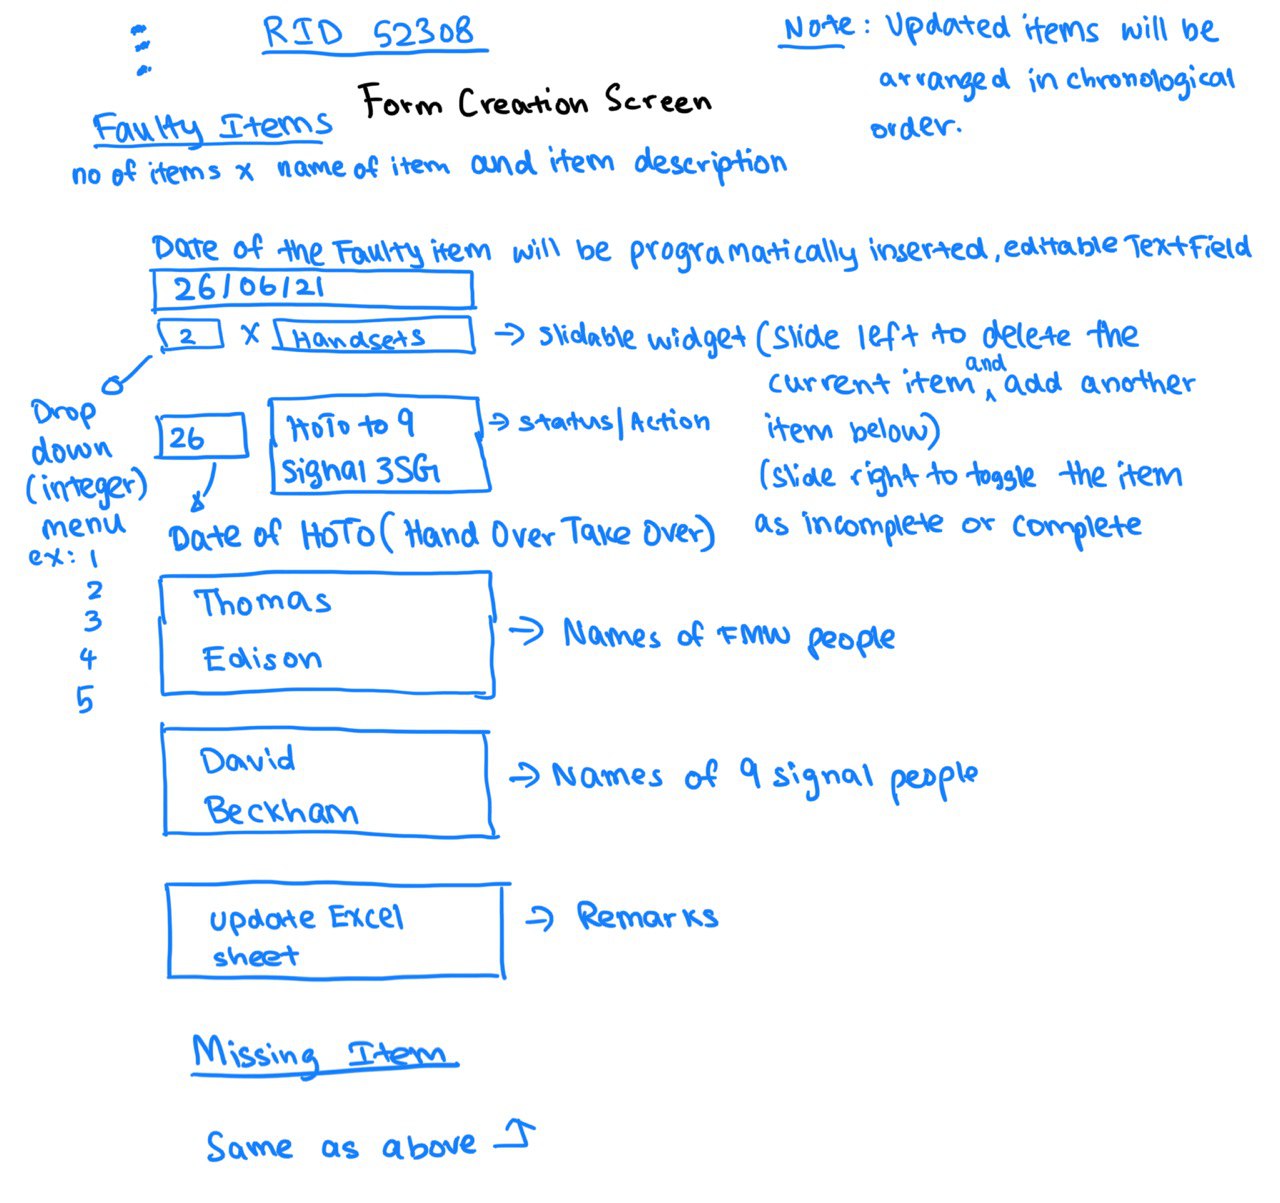 RID 52308
Note: Updated items will be
arranged in chronological
order.
Form Creation Screen
Faulty Items
no of items x name of item and item description
Date of the Faulty item will be programatically inserted, editable TextField
26/06/21
2 x Handsets → Slidable widget (Slide left to delete the
current item and add another
item below)
(slide right to toggle the item
as incomplete or complete
Drop
down
(integer)
menu
ex: 1
2
3
4
5
26
HoTo to 9
Signal 3SG
→ Status/Action
Date of HoTo (Hand Over Take Over)
Thomas
Edison
→ Names of FMW people
David
Beckham
→ Names of 9 signal people
update Excel
sheet
→ Remarks
Missing Item
Same as above ↑